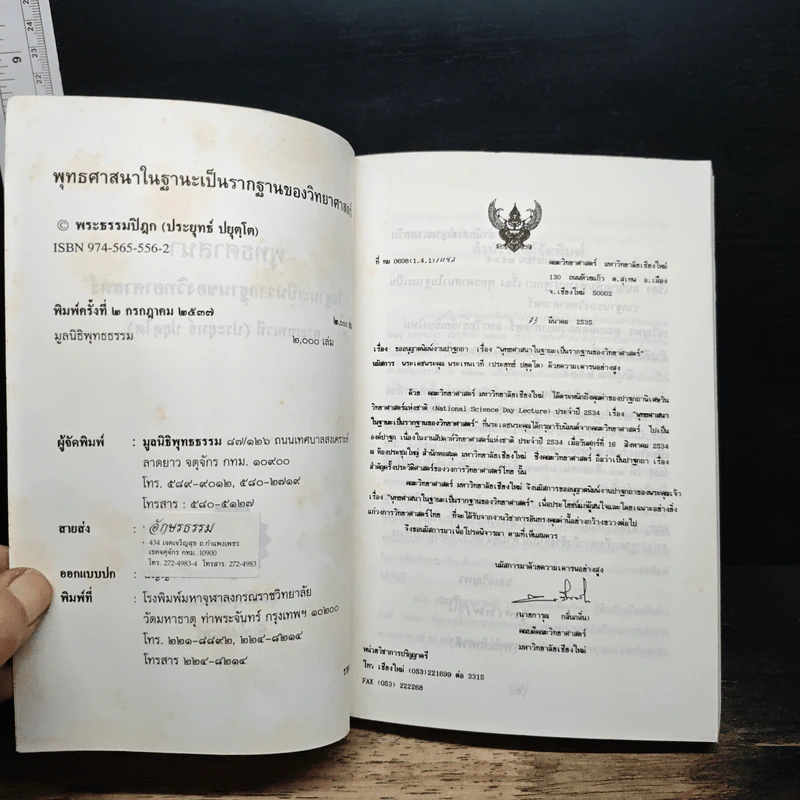 พุทธศาสนาในฐานะเป็นรากฐานของวิทยาศาสตร์
© พระธรรมปิฎก (ประยุทธ์ ปยุตฺโต)
ISBN 974-565-556-2
พิมพ์ครั้งที่ ๒ กรกฎาคม ๒๕๓๗
๒,๐๐๐ เล่ม
มูลนิธิพุทธธรรม ๒,๐๐๐ เล่ม
ผู้จัดพิมพ์ : มูลนิธิพุทธธรรม ๘๗/๑๒๖ ถนนเทศบาลสงเคราะห์
ลาดยาว จตุจักร กทม. ๑๐๙๐๐
โทร. ๕๘๙-๙๐๑๒, ๕๘๐-๒๗๑๙
โทรสาร : ๕๘๐-๕๑๒๗
สายส่ง : อักษรธรรม
434 เจตเจริญสุข ถ.กำแพงเพชร
เขตจตุจักร กทม. 10900
โทร. 272-4983-4 โทรสาร. 272-4983
ออกแบบปก :
พิมพ์ที่ : โรงพิมพ์มหาจุฬาลงกรณราชวิทยาลัย
วัดมหาธาตุ ท่าพระจันทร์ กรุงเทพฯ ๑๐๒๐๐
โทร. ๒๒๑-๘๘๙๒, ๒๒๔-๘๒๑๔
โทรสาร ๒๒๔-๘๒๑๔
ที่ ทม 0608(1.4.1)/
คณะวิทยาศาสตร์ มหาวิทยาลัยเชียงใหม่
130 ถนนห้วยแก้ว ต.สุเทพ อ.เมือง
จ.เชียงใหม่ 50002
13 มีนาคม 2535
เรื่อง ขออนุญาตพิมพ์งานปาฐกถา เรื่อง "พุทธศาสนาในฐานะเป็นรากฐานของวิทยาศาสตร์"
นมัสการ พระเดชพระคุณ พระเทพเวที (ประยุทธ์ ปยุตฺโต) ด้วยความเคารพอย่างสูง
ด้วย คณะวิทยาศาสตร์ มหาวิทยาลัยเชียงใหม่ ได้ตระหนักถึงคุณค่าของปาฐกถาพิเศษวัน
วิทยาศาสตร์แห่งชาติ (National Science Day Lecture) ประจำปี 2534 เรื่อง "พุทธศาสนา
ในฐานะเป็นรากฐานของวิทยาศาสตร์" ที่พระเดชพระคุณได้กรุณารับนิมนต์จากคณะวิทยาศาสตร์ ไปเป็น
องค์ปาฐก เนื่องในงานสัปดาห์วิทยาศาสตร์แห่งชาติ ประจำปี 2534 เมื่อวันศุกร์ที่ 16 สิงหาคม 2534
ณ ห้องประชุมใหญ่ สำนักหอสมุด มหาวิทยาลัยเชียงใหม่ ซึ่งคณะวิทยาศาสตร์ ถือว่าเป็นปาฐกถา เรื่อง
สำคัญครั้งประวัติศาสตร์ของวงการวิทยาศาสตร์ไทย นั้น
คณะวิทยาศาสตร์ มหาวิทยาลัยเชียงใหม่ จึงนมัสการขออนุญาตพิมพ์งานปาฐกถาของพระคุณเจ้า
เรื่อง "พุทธศาสนาในฐานะเป็นรากฐานของวิทยาศาสตร์" เพื่อประโยชน์แก่ผู้สนใจและโดยเฉพาะอย่างยิ่ง
แก่วงการวิทยาศาสตร์ไทย ที่จะได้รับจากงานวิชาการอันทรงคุณค่านี้อย่างกว้างขวางต่อไป
จึงขอนมัสการมาเพื่อโปรดพิจารณา ตามที่เห็นสมควร
นมัสการมาด้วยความเคารพอย่างสูง
(นายการุณ กลิ่นกลิ่น)
คณบดีคณะวิทยาศาสตร์
มหาวิทยาลัยเชียงใหม่
หน่วยวิชาการปริญญาตรี
โทร เชียงใหม่ (053)221699 ต่อ 3315
FAX (053) 222268